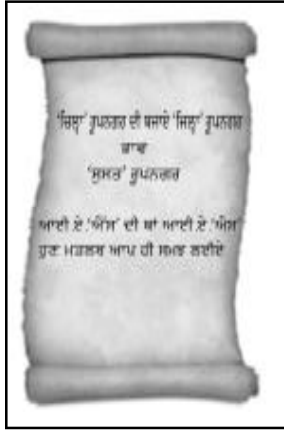 'ਜ਼ਿਲ੍ਹਾ' ਰੂਪਨਗਰ ਦੀ ਬਜਾਏ 'ਜਿਲ੍ਹਾ' ਰੂਪਨਗਰ
ਭਾਵ
'ਸੁਸਤ' ਰੂਪਨਗਰ
ਆਈ ਏ 'ਐੱਸ' ਦੀ ਥਾਂ ਆਈ ਏ 'ਐਸ਼'
ਹੁਣ ਮਤਲਬ ਆਪ ਹੀ ਸਮਝ ਲਈਏ